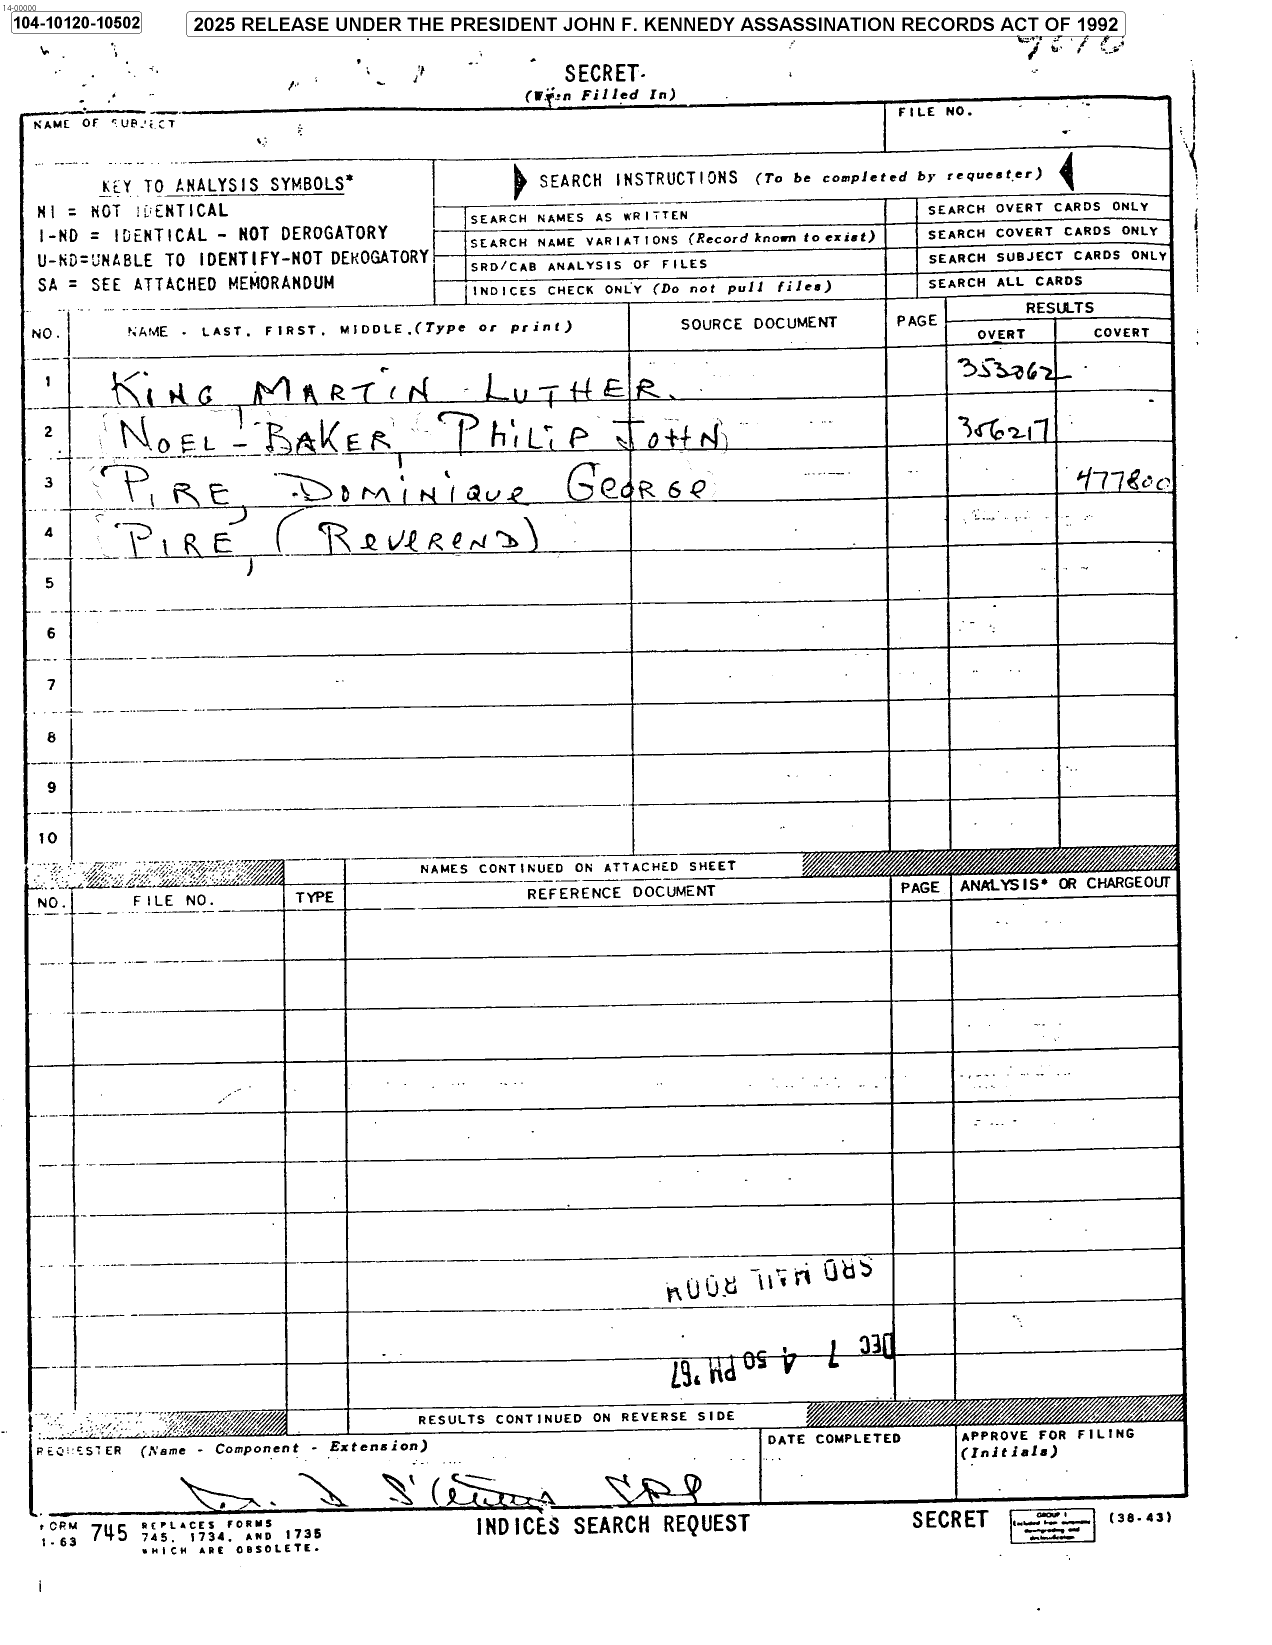 14-00000
104-10120-10502
2025 RELEASE UNDER THE PRESIDENT JOHN F. KENNEDY ASSASSINATION RECORDS ACT OF 1992
SECRET
(When Filled In)
NAME OF SUBJECT
FILE NO.
KEY TO ANALYSIS SYMBOLS*
NI = NOT IDENTICAL
I-ND = IDENTICAL - NOT DEROGATORY
U-ND=UNABLE TO IDENTIFY-NOT DEROGATORY
SA = SEE ATTACHED MEMORANDUM
SEARCH INSTRUCTIONS (To be completed by requester)
SEARCH NAMES AS WRITTEN
SEARCH OVERT CARDS ONLY
SEARCH NAME VARIATIONS (Record known to exist)
SEARCH COVERT CARDS ONLY
SRD/CAB ANALYSIS OF FILES
SEARCH SUBJECT CARDS ONLY
INDICES CHECK ONLY (Do not pull files)
SEARCH ALL CARDS
NO.
NAME - LAST, FIRST, MIDDLE.(Type or print)
SOURCE DOCUMENT
PAGE
RESULTS
OVERT
COVERT
1 KING, MARTIN LUTHER. 353062
2 NOEL-BAKER, PHILIP JOHN 306217
3 PIRE, DOMINIQUE GEORGE 477800
4 PIRE, (REVEREND)
5
6
7
8
9
10
NAMES CONTINUED ON ATTACHED SHEET
NO. FILE NO. TYPE REFERENCE DOCUMENT PAGE ANALYSIS* OR CHARGEOUT
SRD MAIL ROOM
DEC 7 4 50 PM '67
RESULTS CONTINUED ON REVERSE SIDE
REQUESTER (Name - Component - Extension)
DATE COMPLETED
APPROVE FOR FILING
(Initials)
FORM
1-63
745
REPLACES FORMS
745, 1734, AND 1735
WHICH ARE OBSOLETE.
INDICES SEARCH REQUEST
SECRET
GROUP 1
(38-43)